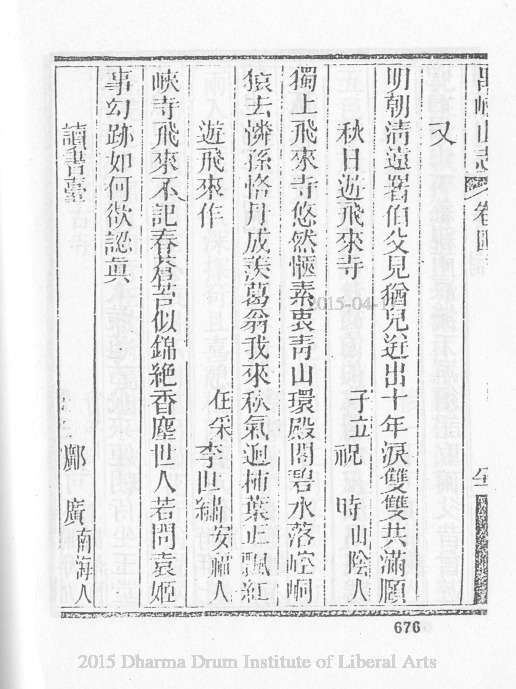 禺峽山志 卷四
又
明朝清遠署伯父見猶兒迸出十年淚雙雙共滿頤
秋日遊飛來寺 子立祝 時山陰人
獨上飛來寺悠然愜素衷青山環殿閣碧水落崆峒
猿去憐孫恪丹成羨葛翁我來秋氣逈柿葉正飄紅
遊飛來作 任采李世繡安福人
峽寺飛來不記春蒼苔似錦絶香塵世人若問袁姬
事勾跡如何欲認眞
讀書臺 鄺 廣南海人
676
2015-04-
2015 Dharma Drum Institute of Liberal Arts